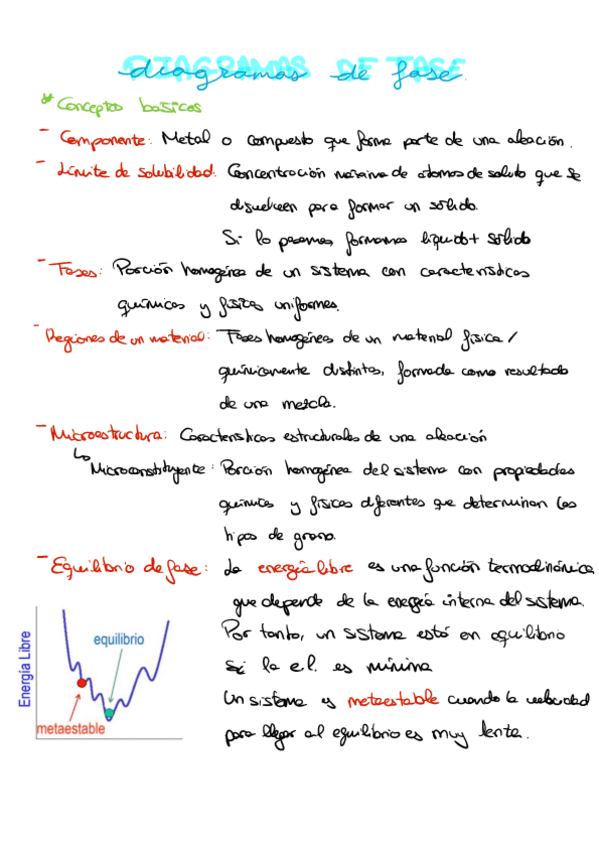 DIAGRAMAS DE FASE
diagramas de fase.
* Conceptos basicos
- Componente: Metal o compuesto que forma parte de una aleación.
- Límite de solubilidad: Concentración máxima de átomos de soluto que se
disuelven para formar un sólido.
Si lo pasamos formamos líquido + sólido
- Fases: Porción homogénea de un sistema con características
químicas y físicas uniformes.
- Regiones de un material: Fases homogéneas de un material física /
químicamente distintas, formada como resultado
de una mezcla.
- Microestructura: Características estructurales de una aleación
↳ Microconstituyente: Porción homogénea del sistema con propiedades
químicas y físicas diferentes que determinan los
tipos de grano.
- Equilibrio de fase: La energía libre es una función termodinámica
que depende de la energía interna del sistema.
Por tanto, un sistema está en equilibrio
si la e.l. es mínima
Un sistema es metaestable cuando la velocidad
para llegar al equilibrio es muy lenta.
Energía Libre
equilibrio
metaestable